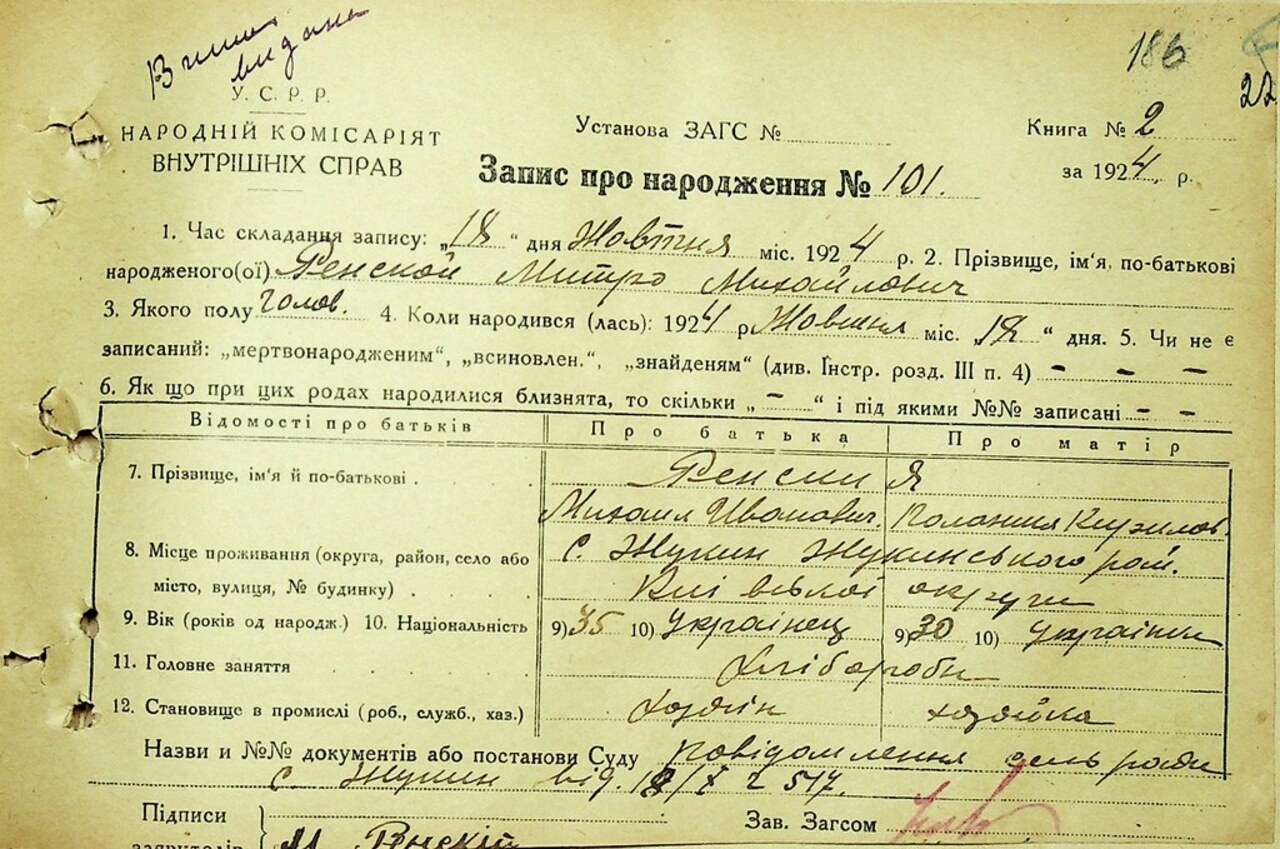 186
22
Виписка видана
У. С. Р. Р.
НАРОДНІЙ КОМІСАРІЯТ
ВНУТРІШНІХ СПРАВ
Установа ЗАГС №
Книга № 2
за 1924 р.
Запис про народження № 101.
1. Час складання запису: „18“ дня Жовтня міс. 1924 р. 2. Прізвище, ім'я, по-батькові
народженого(ої) Ренской Митро Михайлович
3. Якого полу Чолов. 4. Коли народився (лась): 1924 р Жовтня міс. „18“ дня. 5. Чи не є
записаний: „мертвонародженим“, „всиновлен.“, „знайденям“ (див. Інстр. розд. III п. 4) – – –
6. Як що при цих родах народилися близнята, то скільки „–“ і під якими №№ записані – –
Відомості про батьків Про батька Про матір
7. Прізвище, ім'я й по-батькові . Ренски Я
Михаил Иванович. Кирилов.
8. Місце проживання (округа, район, село або с. Жукин Жукинського рай.
місто, вулиця, № будинку) . . Київської округи
9. Вік (років од народж.) 10. Національність 9) 35 10) Українец 9) 30 10) Українка
11. Головне заняття Хлібороби
12. Становище в промислі (роб., служб., хаз.) хозяін хозяйка
Назви и №№ документів або постанови Суду повідомлення сель ради
с. Жукин від. 18/X 517.
Підписи
Зав. Загсом
заявителів М. Ренскій